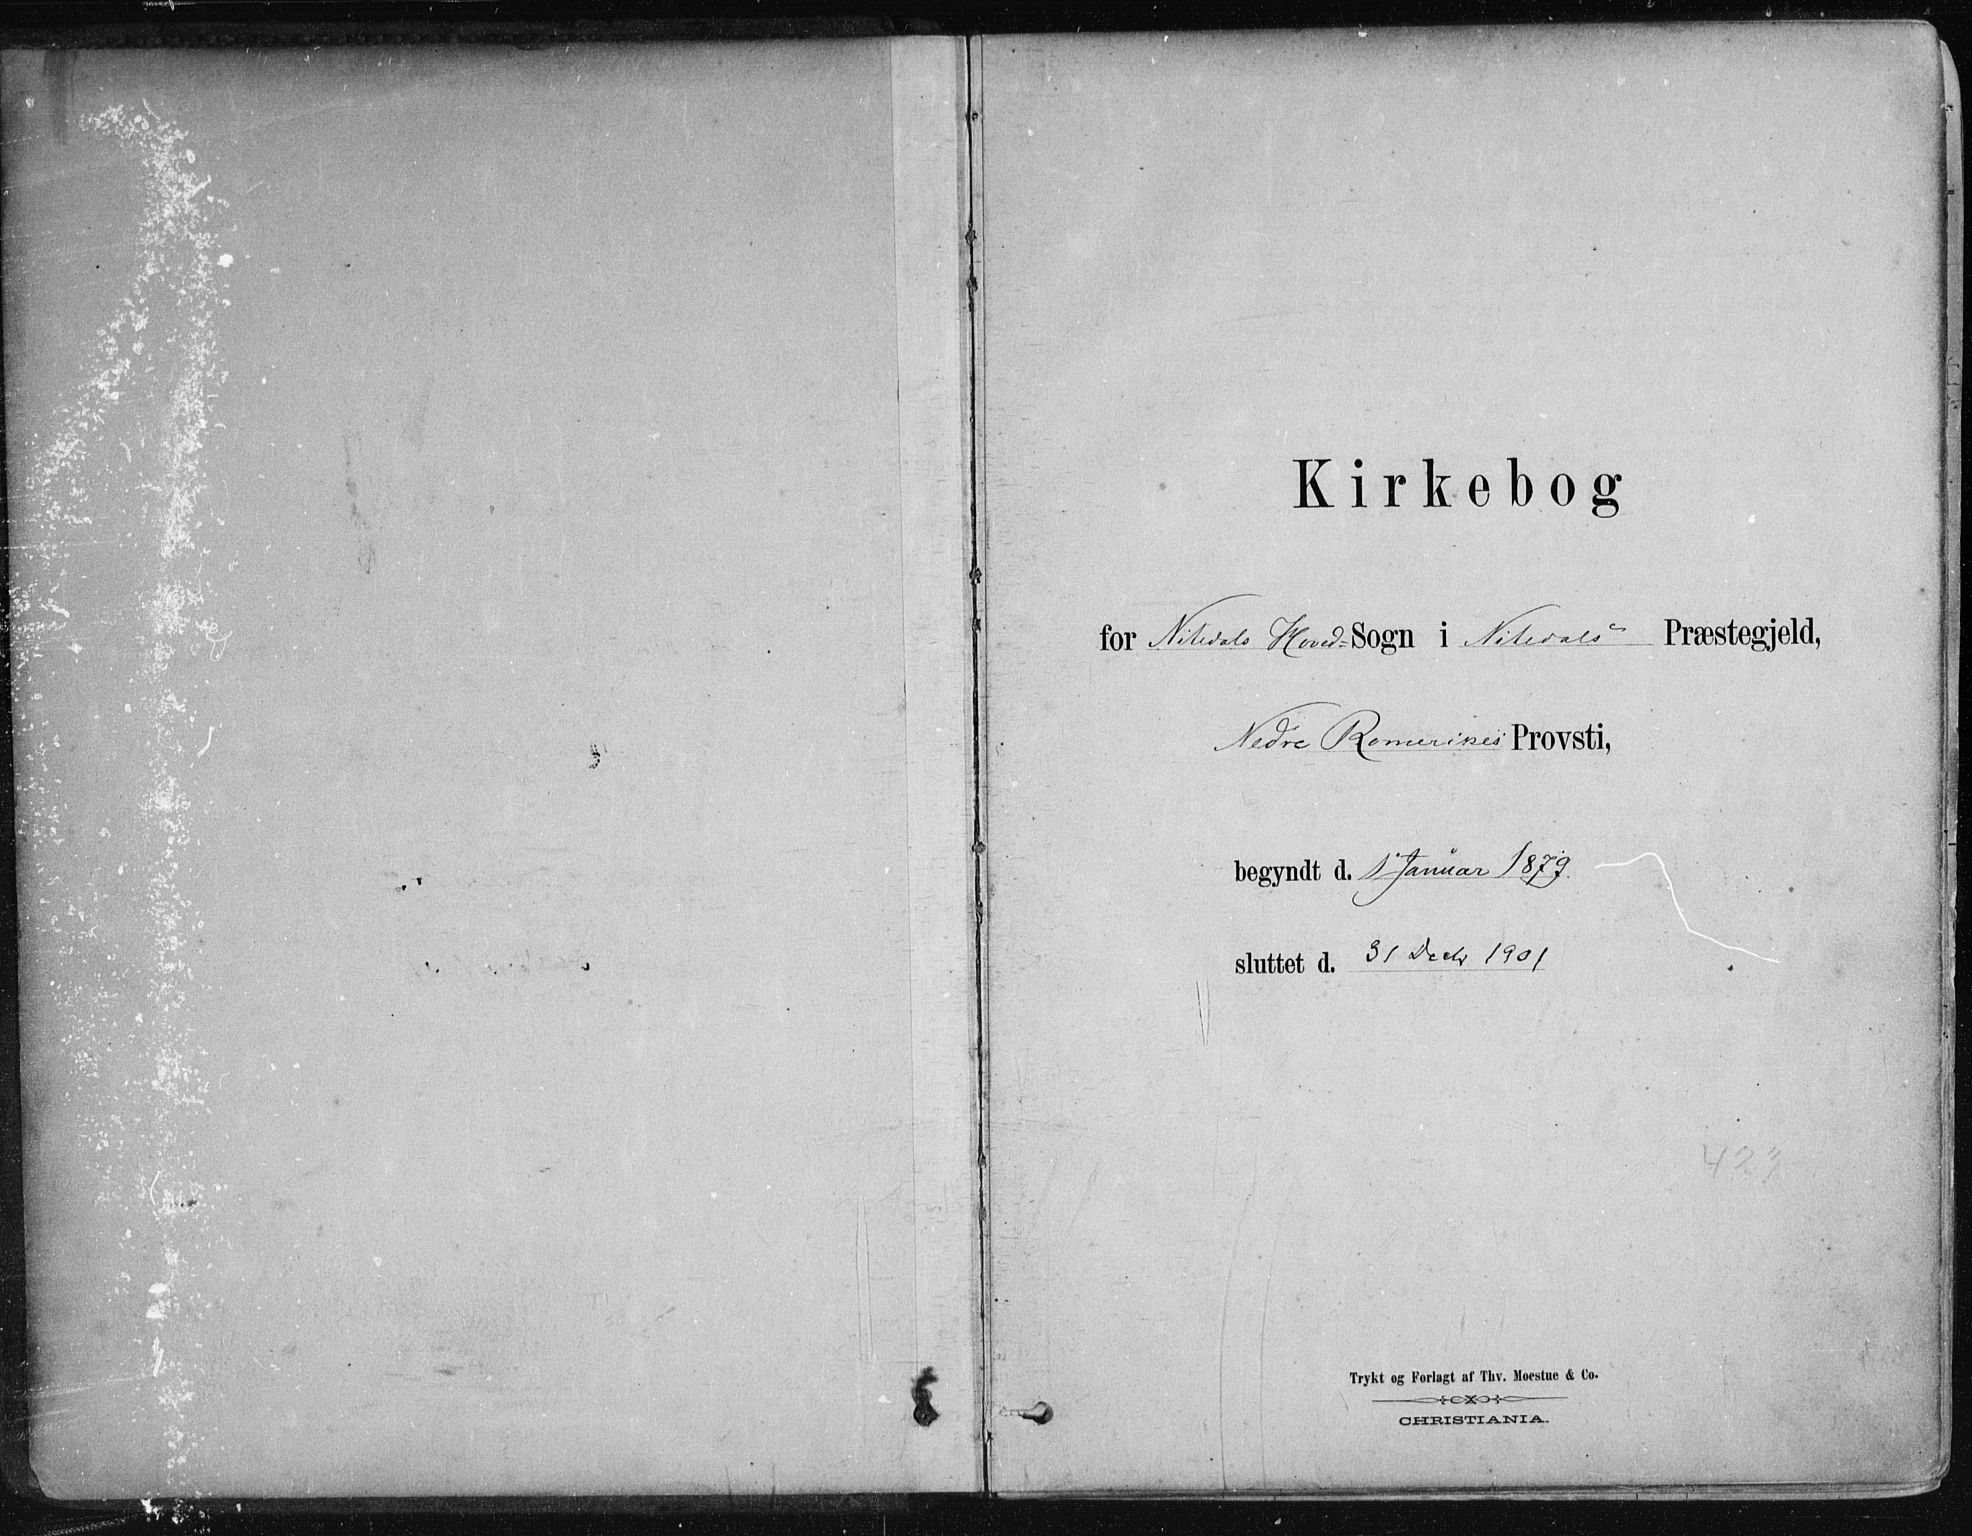 Kirkebog
for Nitedals Hoved-Sogn i Nitedals Præstegjeld,
Nedre Romerikes Provsti,
begyndt d. 1 Januar 1879.
sluttet d. 31 Decbr 1901
423
Trykt og Forlagt af Thv. Moestue & Co.
CHRISTIANIA.